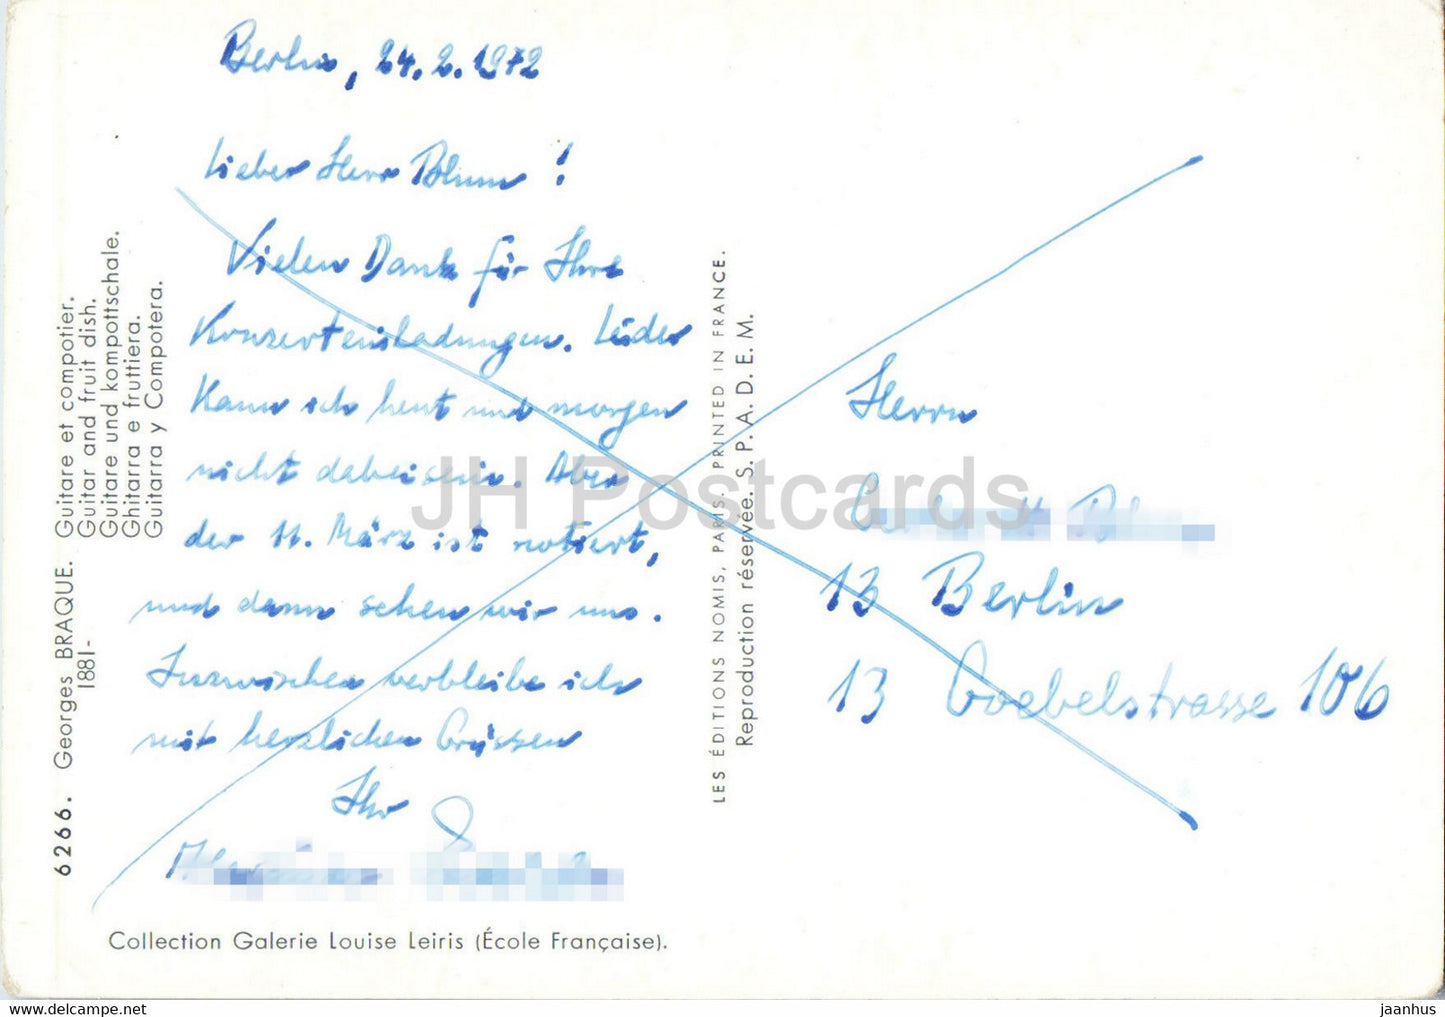 Berlin, 24.2.1972
Lieber Herr Blum!
Vielen Dank für Ihre
Konzerteinladungen. Leider
Kann ich heut und morgen
nicht dabeisein. Aber
der 11. März ist notiert,
und dann sehen wir uns.
Inzwischen verbleibe ich
mit herzlichen Grüssen
Ihr
Herrn
13 Berlin
13 Goebelstrasse 106
6266. Georges BRAQUE. Guitare et compotier.
1881- Guitar and fruit dish.
Guitare und kompottschale.
Ghitarra e fruttiera.
Guitarra y Compotera.
LES ÉDITIONS NOMIS, PARIS. PRINTED IN FRANCE.
Reproduction réservée. S. P. A. D. E. M.
Collection Galerie Louise Leiris (École Française).
JH Postcards
jaanhus